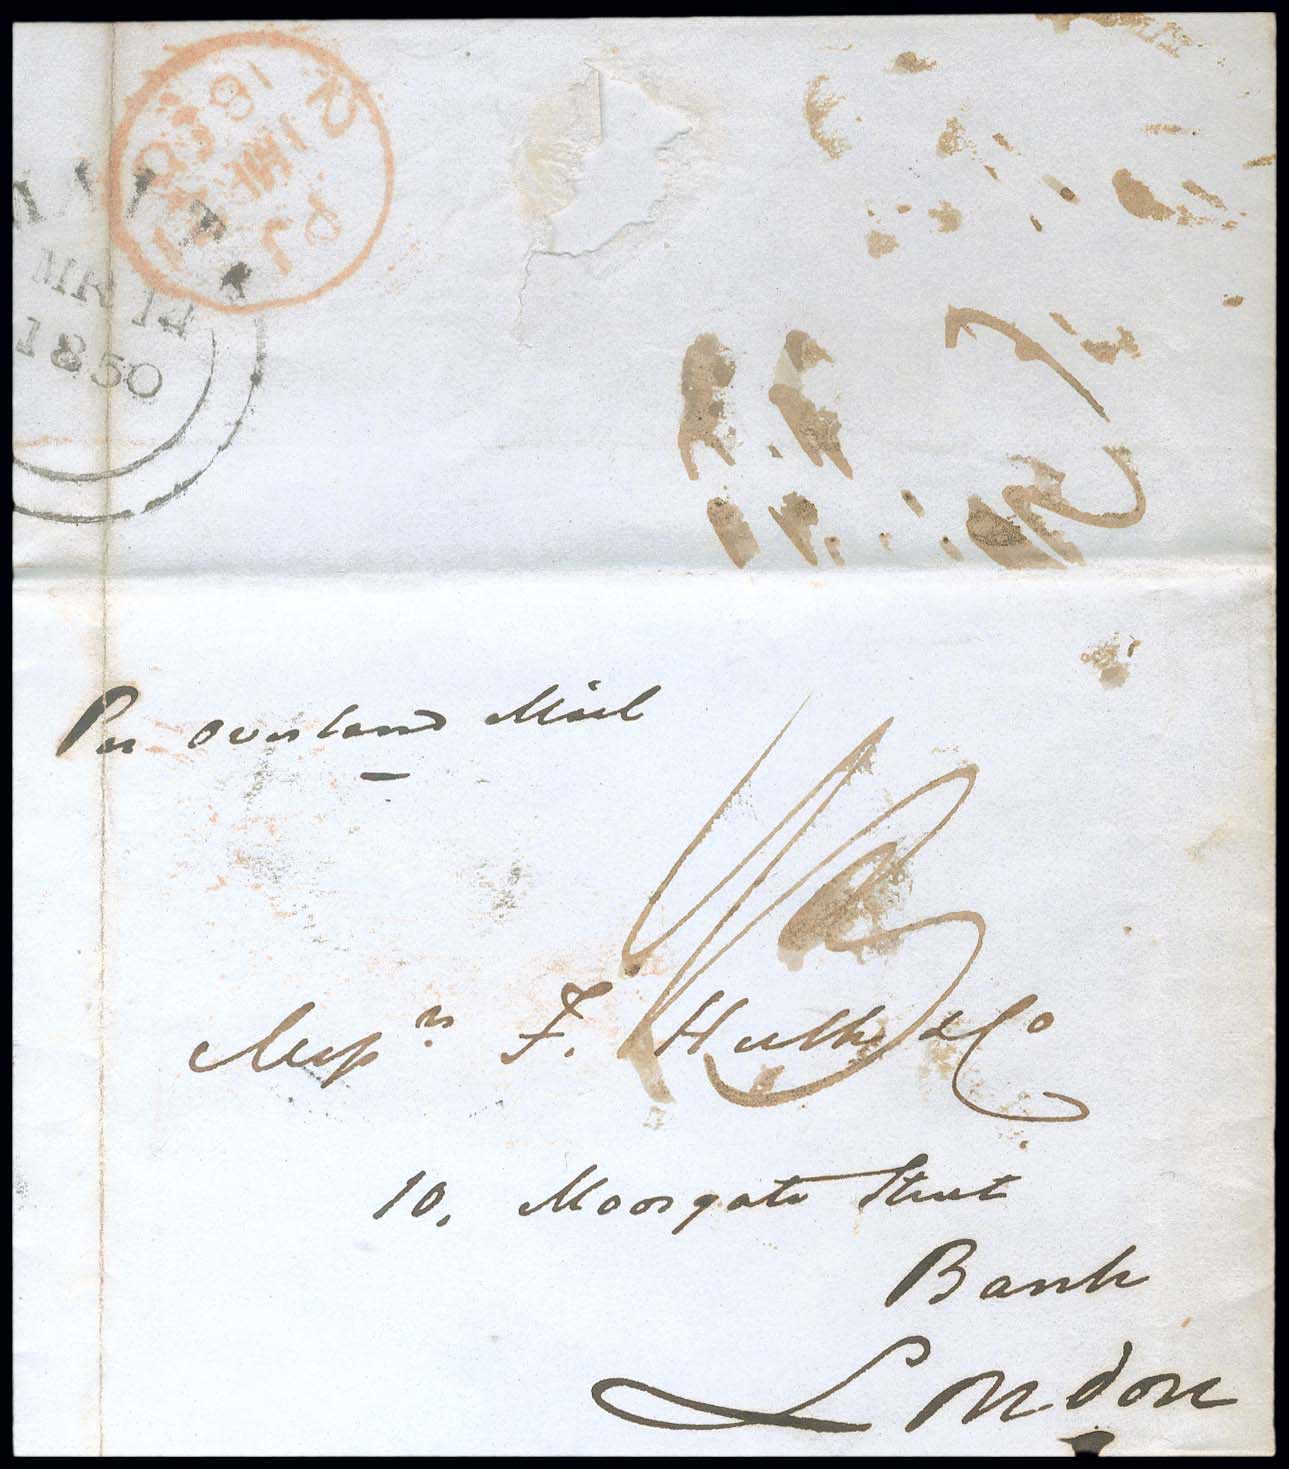 MR 14
1850
Per Overland Mail
Messrs F. Huth & Co
10, Moorgate Street
Bank
London